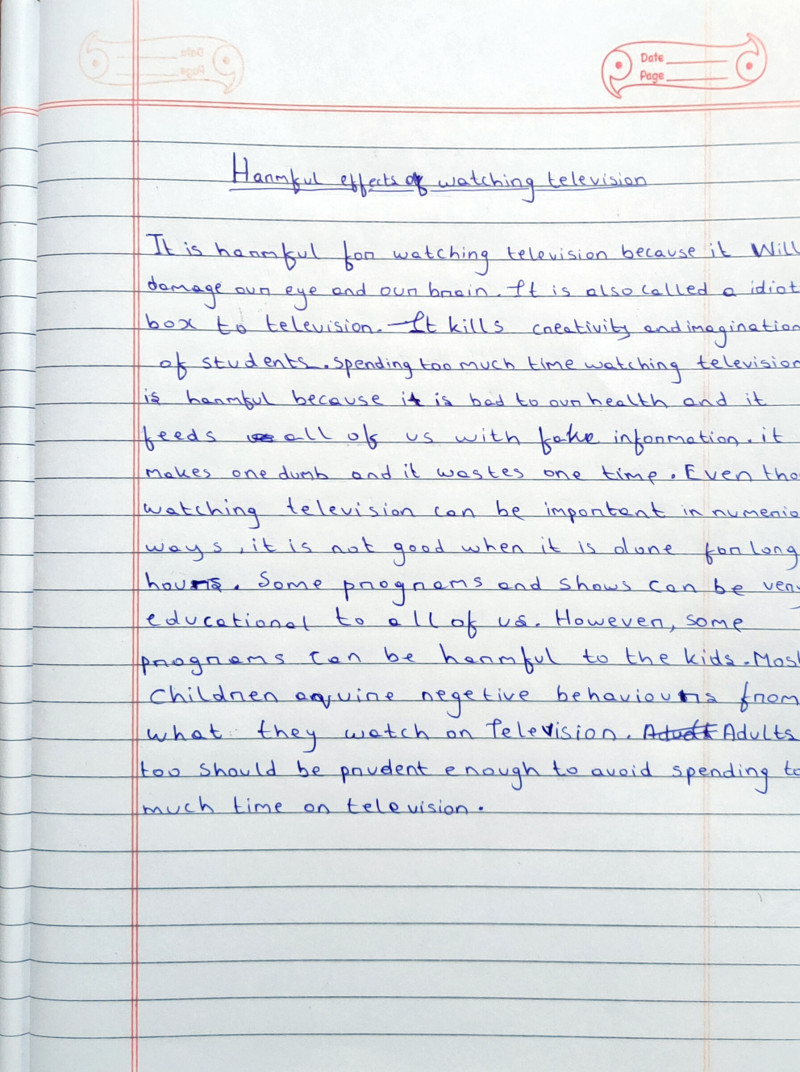 Date
Page
Harmful effects of watching television
It is harmful for watching television because it Will
damage our eye and our brain. It is also called a idiot
box to television. It kills creativity and imagination
of students. spending too much time watching television
is harmful because it is bad to our health and it
feeds all of us with fake information. it
makes one dumb and it wastes one time. Even tho
watching television can be important in numerio
ways, it is not good when it is done for long
hours. Some programs and shows can be very
educational to all of us. However, some
programs can be harmful to the kids. Most
Children aquire negetive behaviours from
what they watch on Television. Adults
too should be prudent enough to avoid spending to
much time on television.